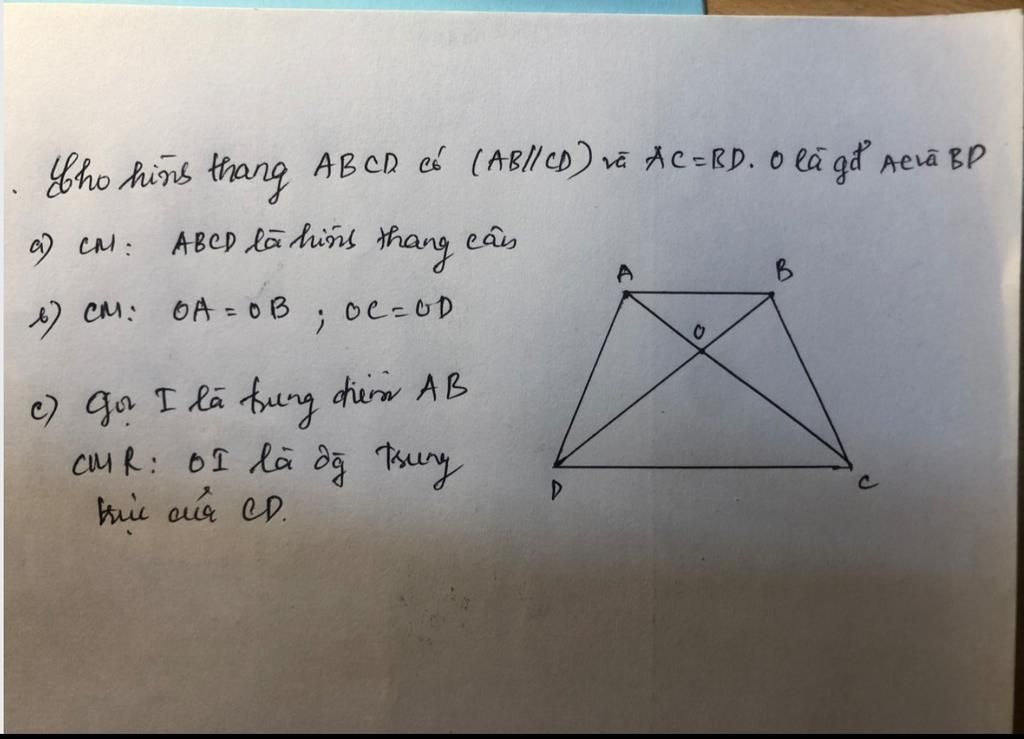 Cho hình thang ABCD có (AB//CD) và AC=BD. O là gđ AC và BD
a) CM: ABCD là hình thang cân
b) CM: OA = OB ; OC = OD
c) Gọi I là trung điểm AB
CMR: OI là đg trung
trực của CD.
A
B
O
D
C